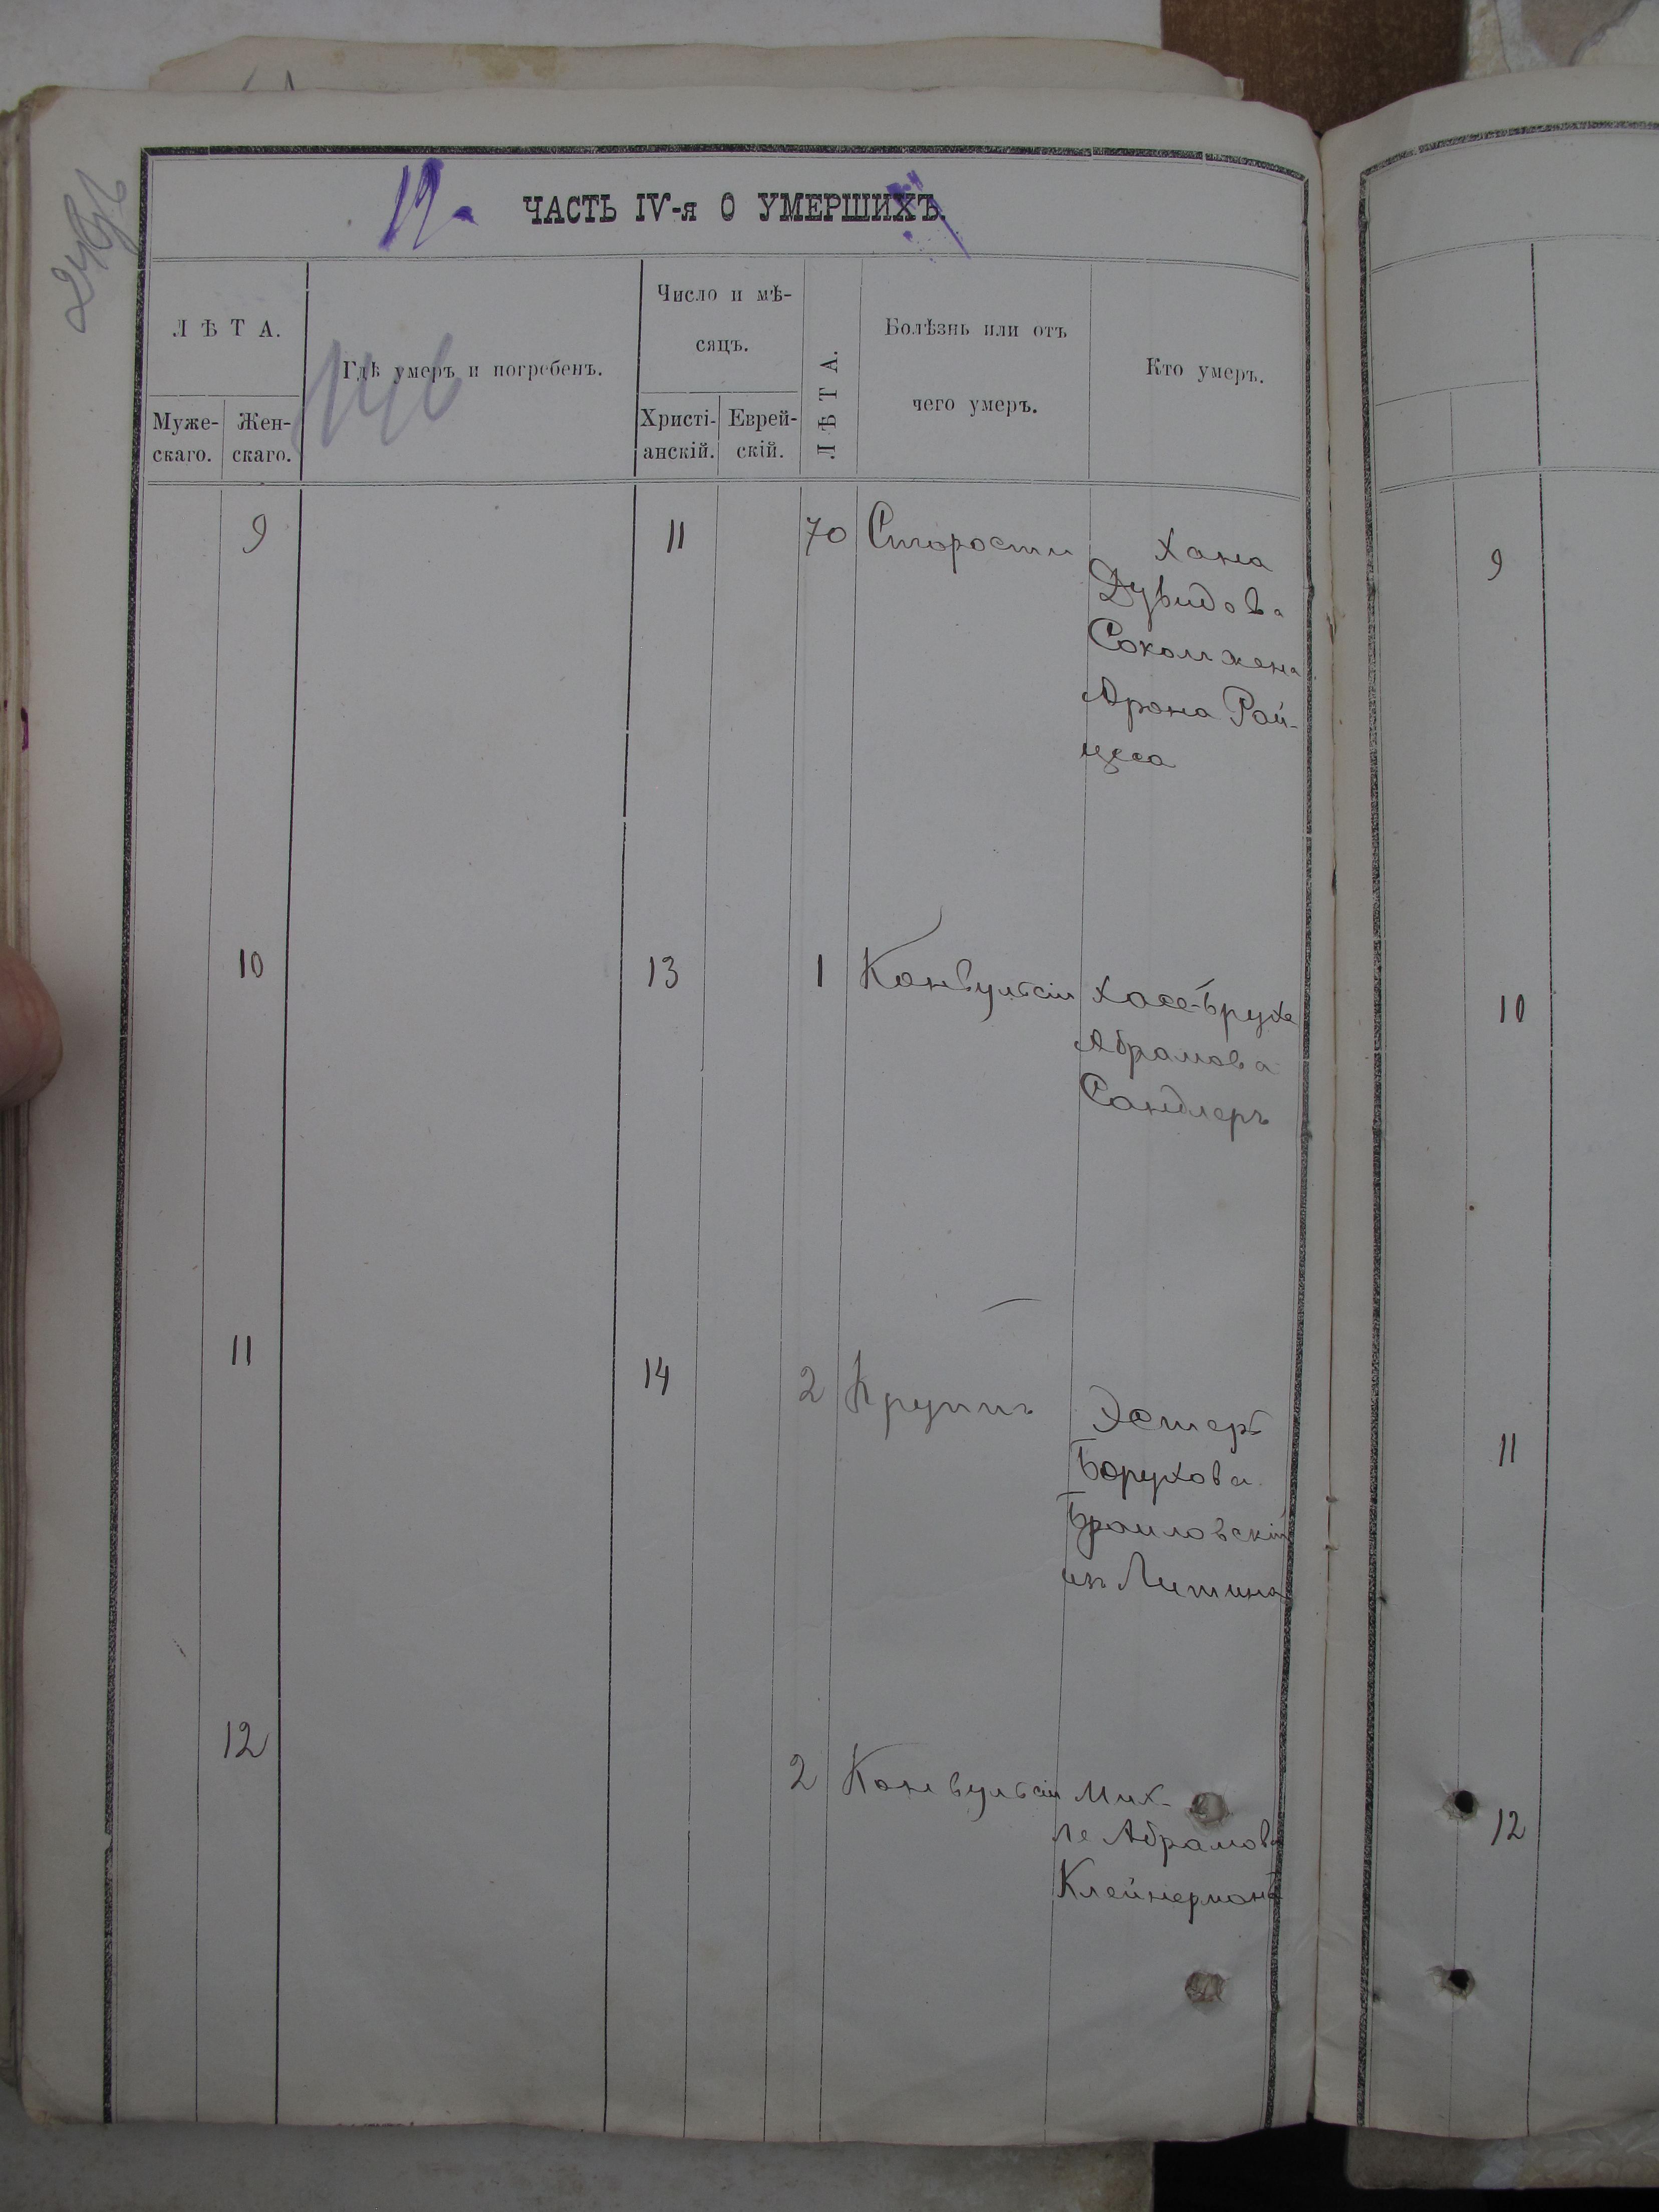 12.
ЧАСТЬ IV-я О УМЕРШИХЪ.
146
ЛѢТА.
Муже-
скаго.
Жен-
скаго.
Гдѣ умеръ и погребенъ.
Число и мѣ-
сяцъ.
Христі-
анскій.
Еврей-
скій.
ЛѢТА.
Болѣзнь или отъ
чего умеръ.
Кто умеръ.
9 11 70 Старости Хана
Дувидова
Соколъ жена
Арона Рай-
цеса
9
10 13 1 Конвульсіи Хасе-Брухе
Абрамова
Сандлеръ
10
11 14 2 Крупъ Эстеръ
Борухова
Браиловскій
изъ Литина
11
12 2 Конвульсіи Мих-
ле Абрамова
Клейнерманъ
12